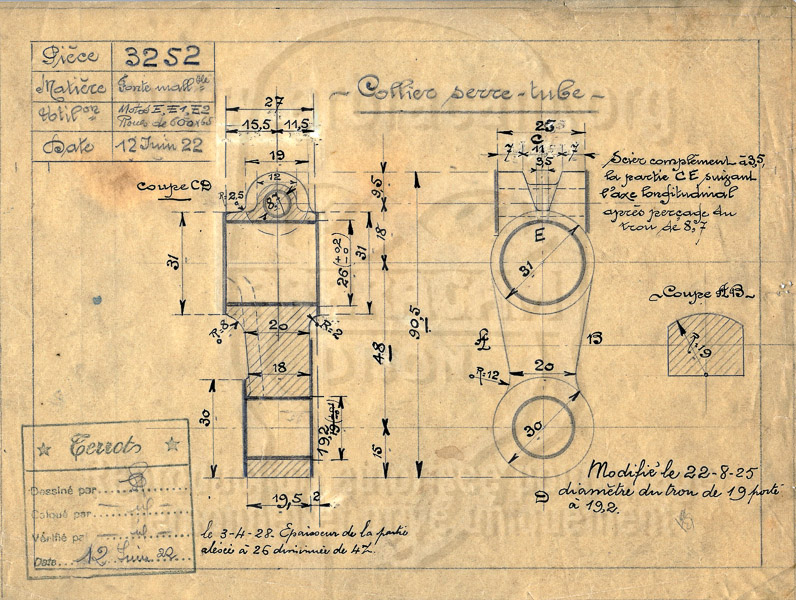 Pièce 3252
Matière Fonte mall^ble
Util^on Motos E, E1, E2
Roues de 600x65
Date 12 Juin 22
- Collier serre-tube -
27
15,5 11,5
19
12
8,7
R=2,5
coupe CD
31
26 (+0,2 -0)
31
9,5
18
90,5
48
15
R=8
20
R=2
18
30
19,2
19,5 2
25
C
7 11,5 7
3,5
Scier complément à 3,5
la partie CE suivant
l'axe longitudinal
après perçage du
trou de 8,7
E
31
A B
R=12
20
30
D
Coupe AB
R=19
Modifié le 22-8-25
diamètre du trou de 19 porté
à 19,2.
le 3-4-28. Epaisseur de la partie
alésée à 26 diminuée de 4
Terrots
Dessiné par
Calqué par
Vérifié par
Date 12 Juin 22